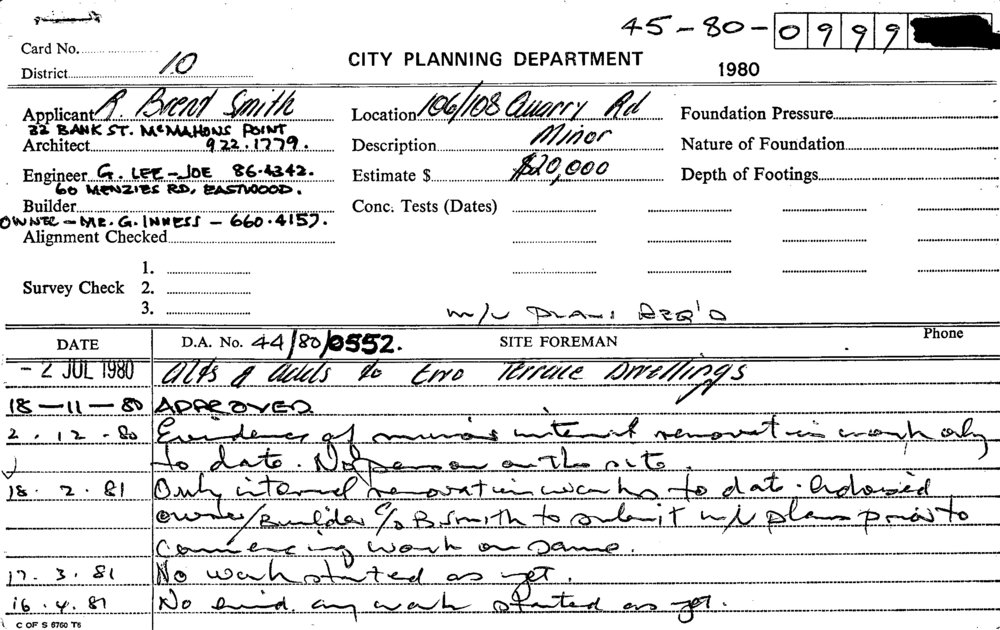 45-80-0999
Card No.
District 10
CITY PLANNING DEPARTMENT
1980
Applicant R. Brent Smith
Location 106/108 Quarry Rd
Foundation Pressure
32 BANK ST. McMAHONS POINT
Architect 922.1779.
Description Minor
Nature of Foundation
Engineer G. LEE-JOE 86.4342.
Estimate $ $20,000
Depth of Footings
60 MENZIES RD, EASTWOOD.
Builder
Conc. Tests (Dates)
OWNER - MR. G. INNESS - 660.4157.
Alignment Checked
1.
Survey Check 2.
3.
m/u PLANS REQ'D
DATE
D.A. No. 44/80/0552.
SITE FOREMAN
Phone
- 2 JUL 1980 Alts & adds to two Terrace Dwellings
18-11-80 APPROVED
2.12.80 Evidence of minor internal renovation work only
to date. No person on the site.
18.2.81 Only internal renovation works to date. Advised
owner/Builder c/o B. Smith to submit m/u plans prior to
commencing work on same.
17.3.81 No work started as yet.
16.4.81 No evid. any work started as yet.
C OF S 6760 T6